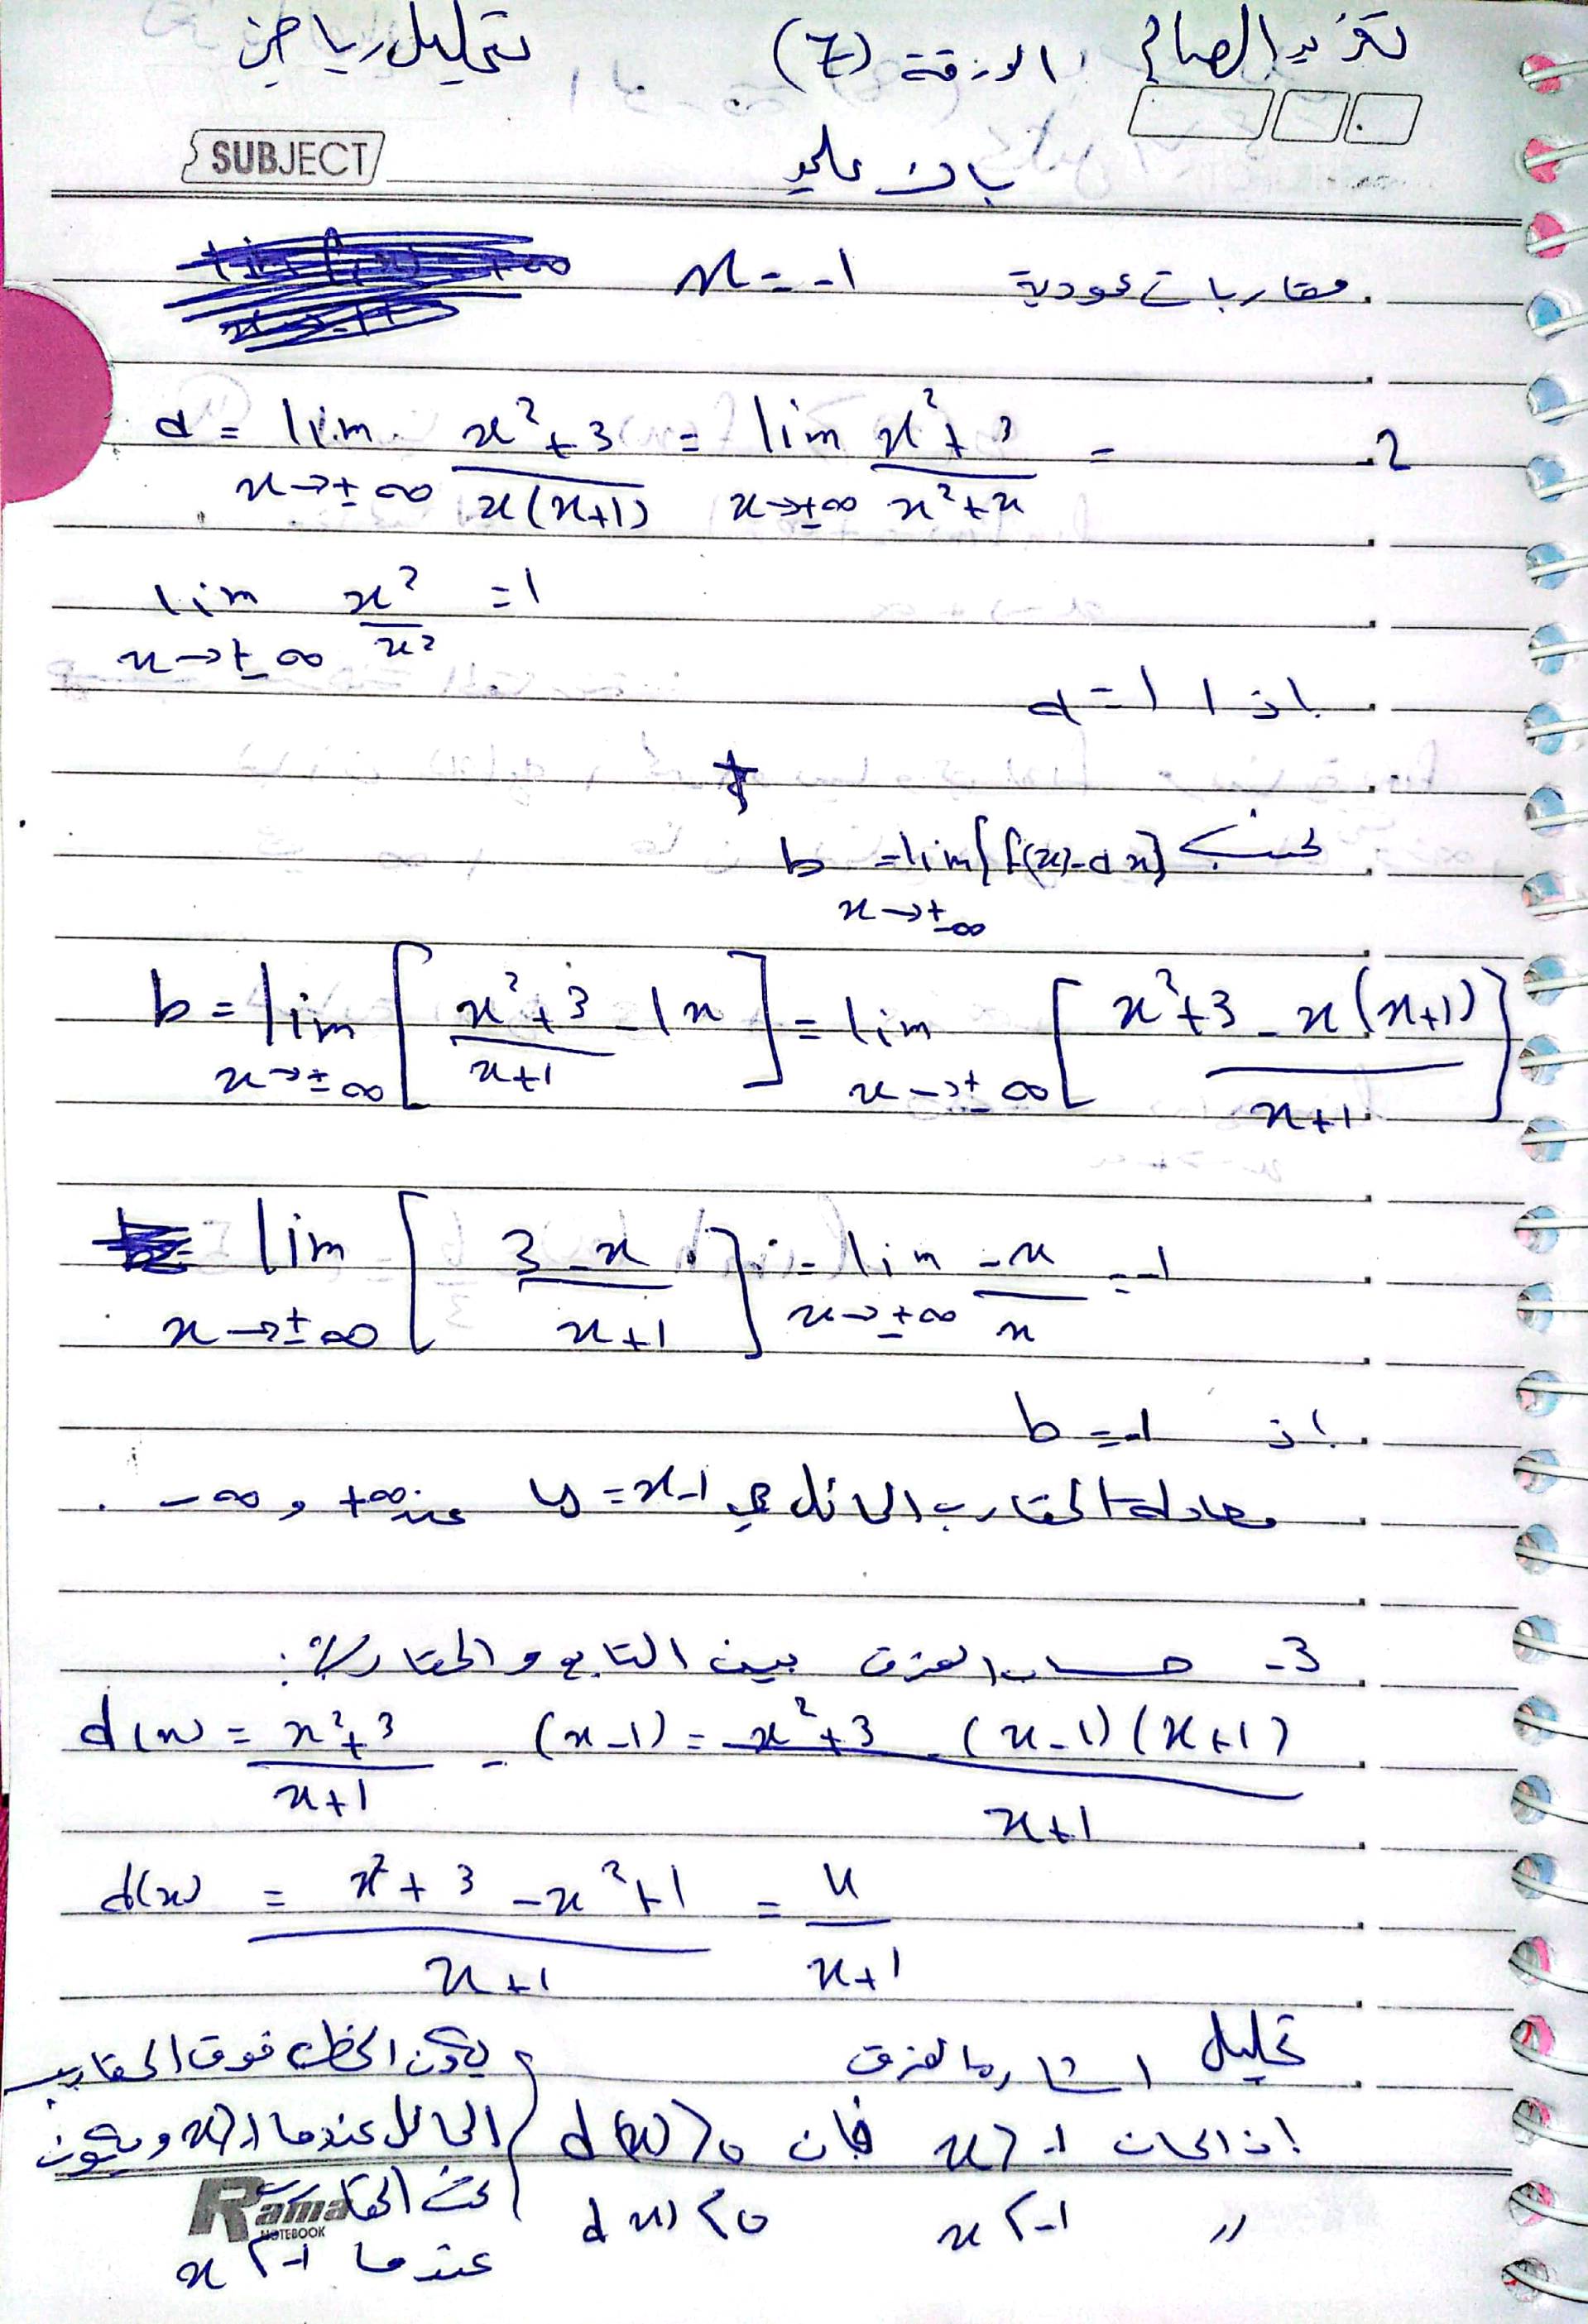 تغريد الصالح الورقة (7) تحليل رياضي
SUBJECT
مقاربات عمودية x = -1
2- a = lim x→±∞ (x²+3)/(x(x+1)) = lim x→±∞ (x²+3)/(x²+x) =
lim x→±∞ x²/x² = 1
اذا a = 1
نحسب b = lim x→±∞ [f(x)-ax]
b = lim x→±∞ [(x²+3)/(x+1) - 1x] = lim x→±∞ [(x²+3-x(x+1))/(x+1)]
lim x→±∞ [(3-x)/(x+1)] = lim x→±∞ -x/x = -1
اذ b = -1
معادلة المقارب المائل هي y = x-1 عند +∞ و -∞ .
3- حساب الفرق بين التابع والمقارب:
d(x) = (x²+3)/(x+1) - (x-1) = (x²+3-(x-1)(x+1))/(x+1)
d(x) = (x²+3-x²+1)/(x+1) = 4/(x+1)
تحليل اشارة الفرق
اذا كان x > -1 فان d(x) > 0
" x < -1 d(x) < 0
يكون الخط فوق المقارب
المائل عندما x > -1 ويكون
تحت المقارب
عندما x < -1
Rama
NOTEBOOK